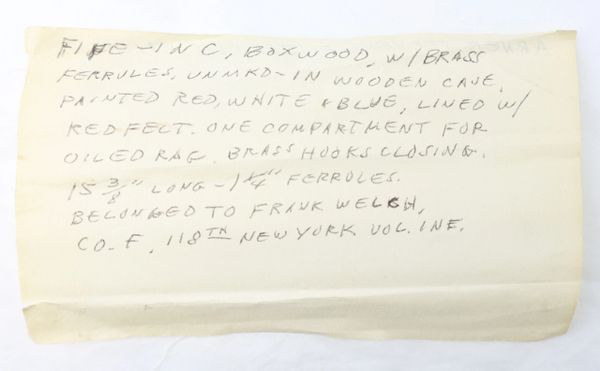 FIFE-IN C, BOXWOOD, W/BRASS
FERRULES, UNMKD-IN WOODEN CASE,
PAINTED RED, WHITE & BLUE, LINED W/
RED FELT. ONE COMPARTMENT FOR
OILED RAG. BRASS HOOKS CLOSING.
15 3/8" LONG - 1 1/4" FERRULES.
BELONGED TO FRANK WELCH,
CO. F, 118TH NEW YORK VOL. INF.